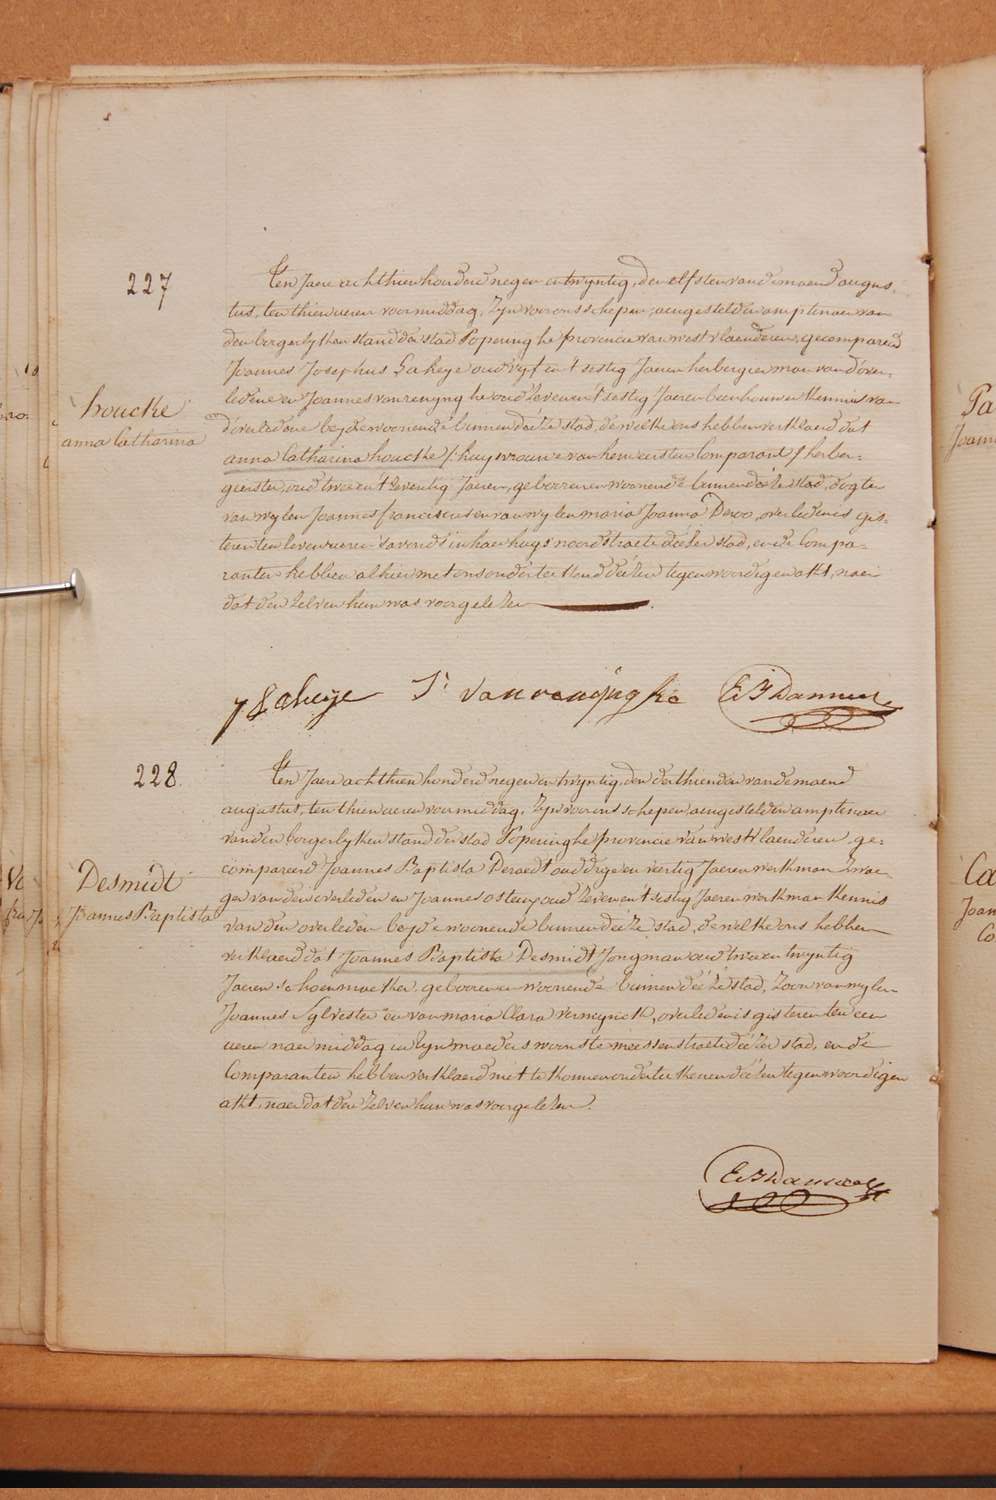 227
houcke
anna Catharina
Ten Jaere achthien honderd negen en twyntig, den elfsten van de maend augus-
tus, ten thien ueren voormiddag, Zyn voor ons schepen, aengestelden amptenaer van
den borgerlyken stand der stad Poperinghe provincie van west vlaenderen, gecompareerd
Joannes Josephus Gaheye oud vyf en t sestig Jaeren herbergier man van d'over-
ledene en Joannes van renynghe oud zeven en t sestig Jaeren bouwman kennis van
d'overledene beyde woonende binnen deéze stad, de welke ons hebben verklaerd dat
anna Catharina houcke /: huysvrouwe van hem eersten Comparant :/ herber-
gierster, oud twee en t zeventig Jaeren, gebooren en woonende binnen deéze stad, dogter
van wylen Joannes franciscus en van wylen maria Joanna Devos, overleden is gis-
teren ten zeven ueren s'avonds in haer huys noordstraete deézer stad, en de Compa-
ranten hebben alhier met ons onderteekend deézen tegenwoordigen akt, naer
dat den zelven hun was voorgelezen
J Gaheye J: van renÿnghe E J Danneel
228
Desmidt
Joannes Baptista
Ten Jaere achthien honderd negen en twyntig, den derthienden van de maend
augustus, ten thien ueren voormiddag, Zyn voor ons schepen, aengestelden amptenaer
van den borgerlyken stand der stad Poperinghe provincie van west vlaenderen, ge-
compareerd Joannes Baptista Deraedt oud drye en viertig Jaeren werkman Zwae-
ger van den overleden en Joannes osteux oud zeven en t sestig Jaeren werkman kennis
van den overleden beyde woonende binnen deéze stad, de welke ons hebben
verklaerd dat Joannes Baptista Desmidt Jongman oud twee en twyntig
Jaeren schoenmaeker, gebooren en woonende binnen deéze stad, Zoon van wylen
Joannes Sylvester en van maria Clara Vermeynck, overleden is gisteren ten een
ueren naermiddag in Zyn moeders woonste meessenstraete deézer stad, en de
Comparanten hebben verklaerd niet te konnen onderteekenen deézen tegenwoordigen
akt, naer dat den zelven hun was voorgelezen.
E J Danneel
Joann
Joann